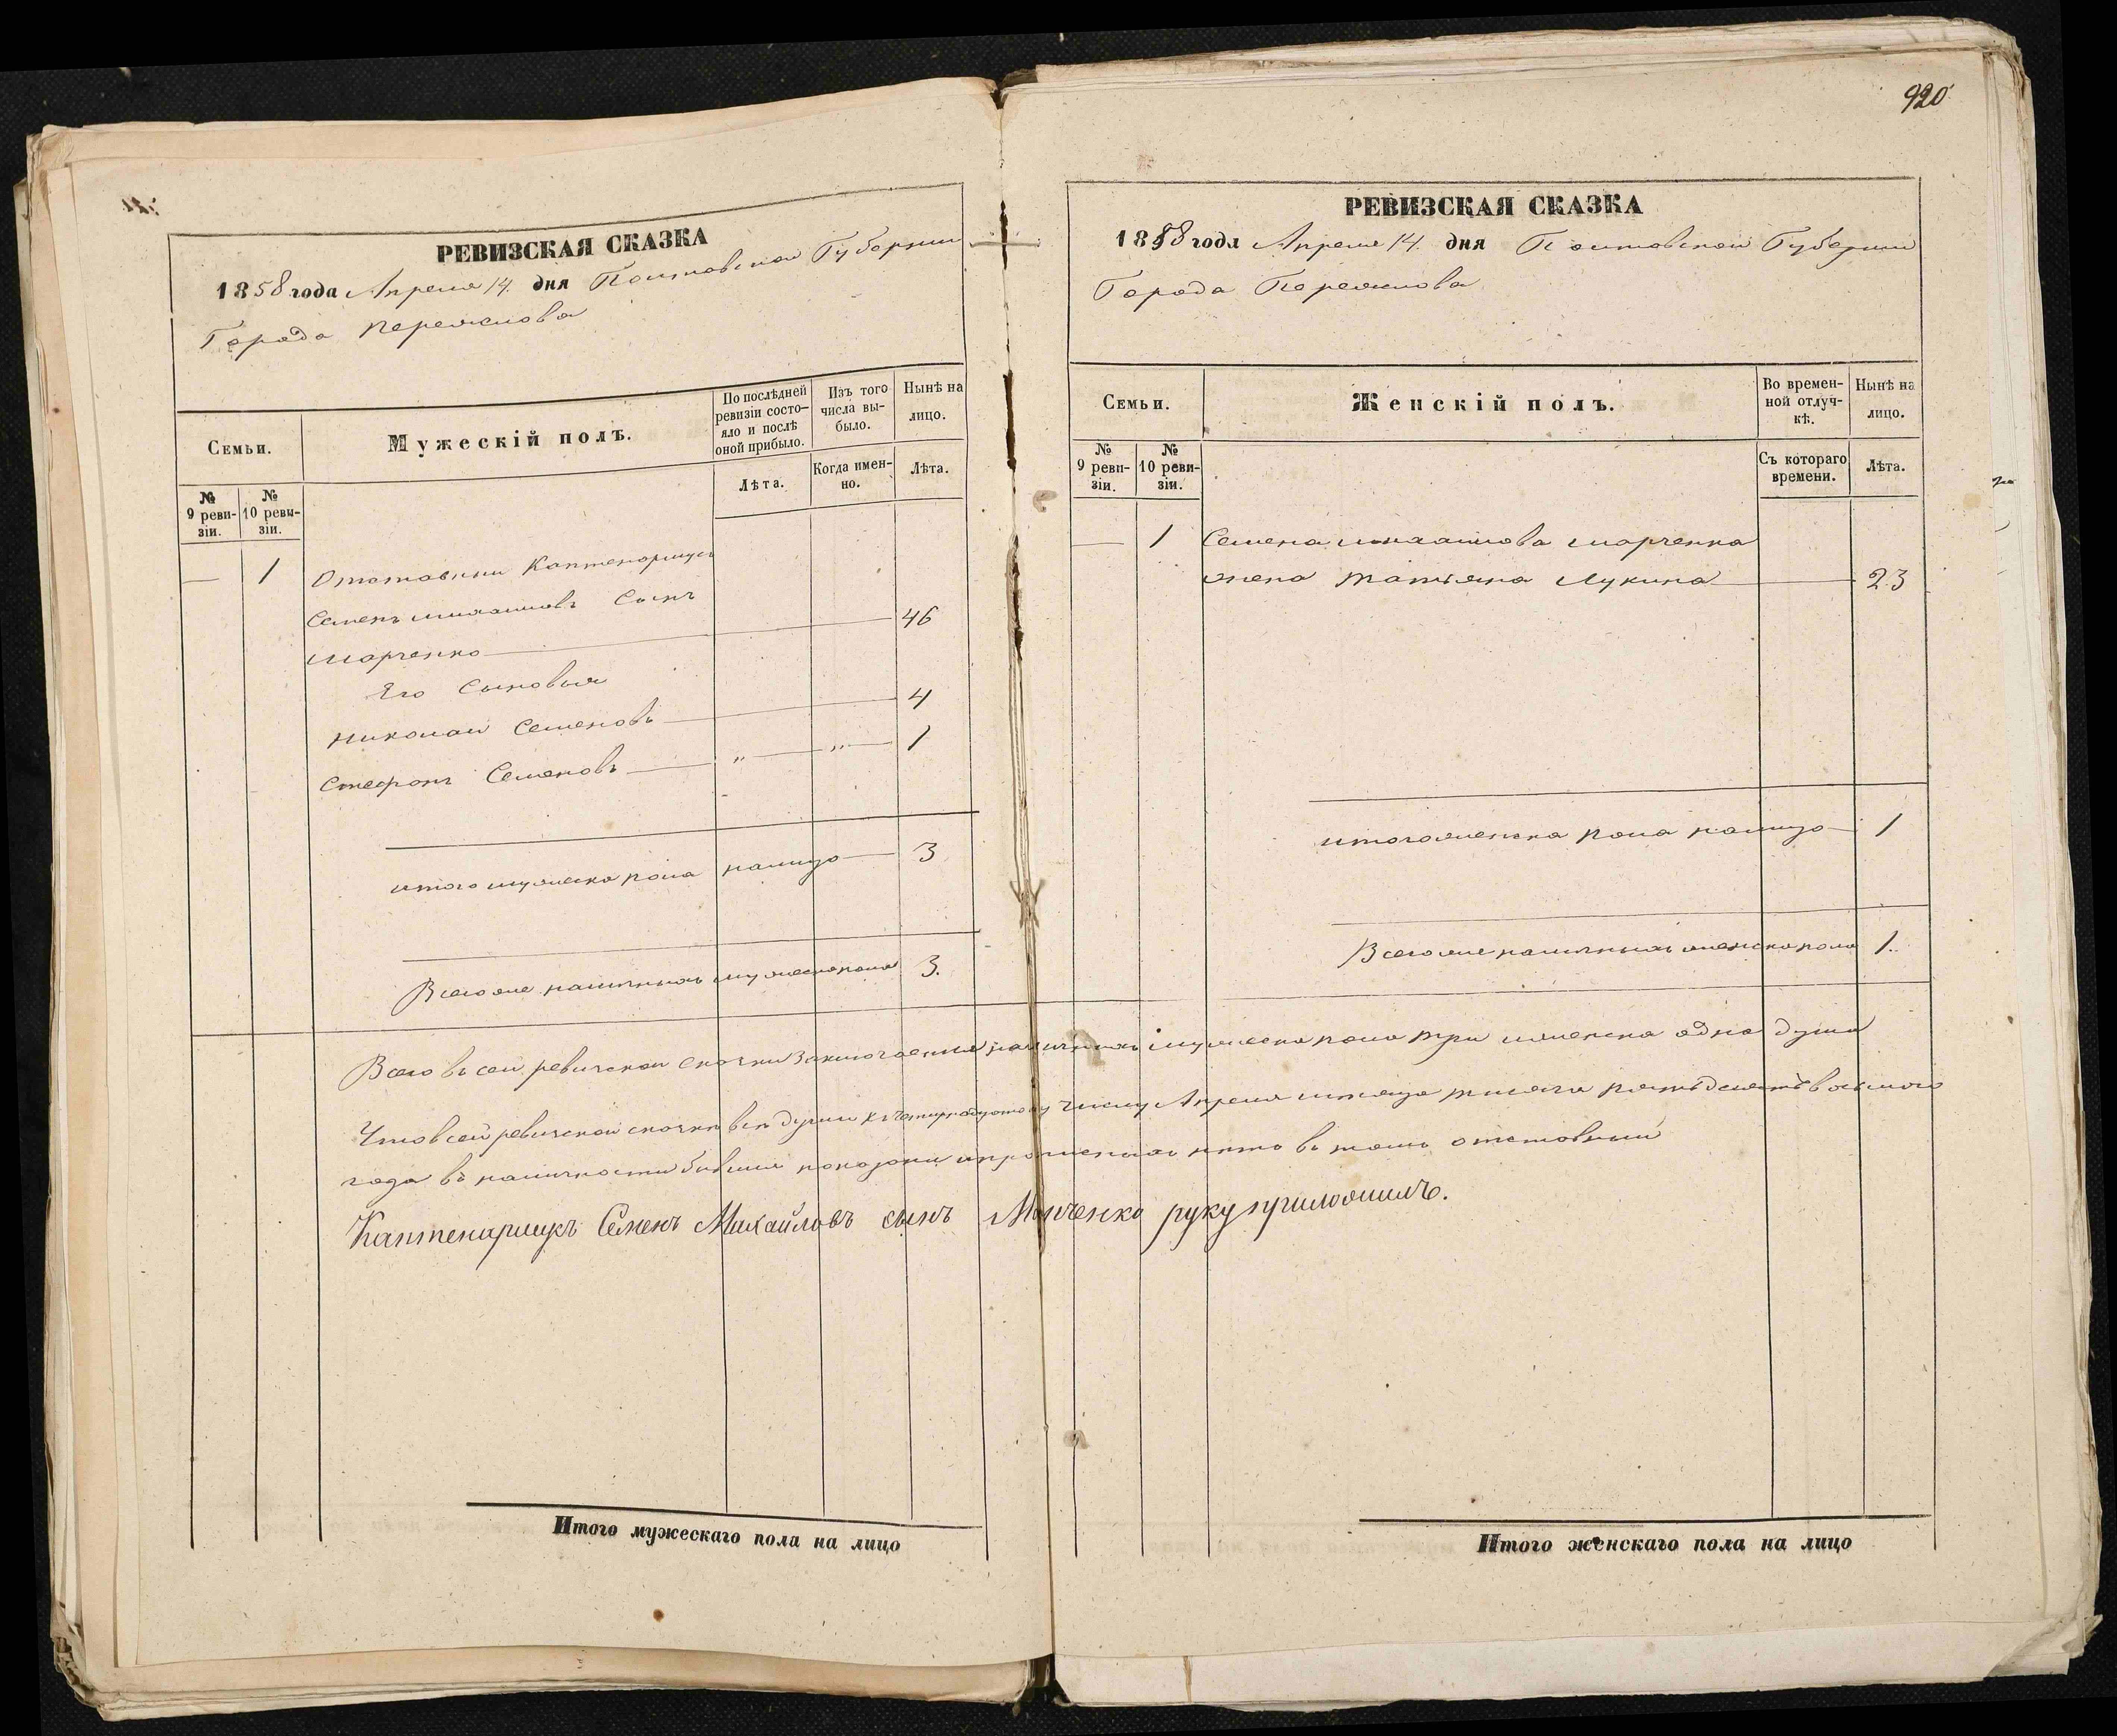 РЕВИЗСКАЯ СКАЗКА
1858 года Апреля 14. дня Полтавской Губернии
Города Переяслова
Семьи.
Мужескій полъ.
По послѣдней ревизіи состо-
яло и послѣ
оной прибыло.
Изъ того
числа вы-
было.
Нынѣ на
лицо.
№
9 реви-
зіи.
№
10 реви-
зіи.
Лѣта.
Когда имен-
но.
Лѣта.
— 1 Отставнии Каптенармусъ
Семенъ михаиловъ Сынъ 46
Марченко
Его Сыновья
Николаи Семеновъ 4
Стефанъ Семеновъ " " 1
итого мужеска пола налицо 3
Всего же наличныхъ мужеска пола 3.
РЕВИЗСКАЯ СКАЗКА
920
1858 года Апреля 14. дня Полтавской Губернии
Города Переяслова
Семьи.
Женскій полъ.
Во времен-
ной отлуч-
кѣ.
Нынѣ на
лицо.
№
9 реви-
зіи.
№
10 реви-
зіи.
Съ котораго
времени.
Лѣта.
— 1 Семена михаилова марченка
жена татьяна Лукина 23
итого женска пола налицо 1
Всего же наличныхъ женска пола 1.
Всего въ сей ревизской сказки заключается наличныхъ мужеска пола три и женска одна душа
Что в сей ревизской сказки всѣ души къ четырнадцатому числу Апреля месяца тысяча пятьдесятъ восьмого
года въ наличности бывшия показаны и прописныхъ нетъ въ томъ отставный
Каптенармусъ Семенъ Михайловъ сынъ Марченко руку приложилъ.
Итого мужескаго пола на лицо
Итого женскаго пола на лицо